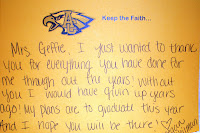 Keep the Faith...
Mrs. Geffie, I just wanted to thank
you for everything you have done for
me through out the years! Without
you I would have givin up years
ago! My plans are to graduate this year
And I hope you will be there!